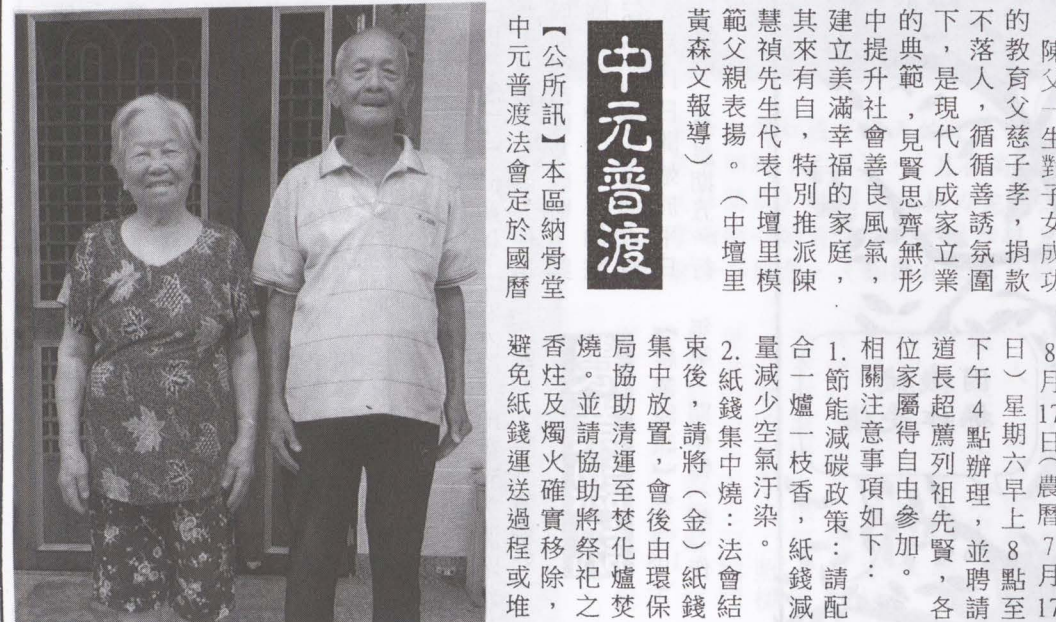 陳父一生對子女成功
的教育父慈子孝，捐款
不落人，循循善誘氛圍
下，是現代人成家立業
的典範，見賢思齊無形
中提升社會善良風氣，
建立美滿幸福的家庭，
其來有自，特別推派陳
慧禎先生代表中壇里模
範父親表揚。（中壇里
黃森文報導）
中元普渡
【公所訊】本區納骨堂
中元普渡法會定於國曆
8月17日（農曆7月17
日）星期六早上8點至
下午4點辦理，並聘請
道長超薦列祖先賢，各
位家屬得自由參加。
相關注意事項如下：
1.節能減碳政策：請配
合一爐一枝香，紙錢減
量減少空氣汙染。
2.紙錢集中燒：法會結
束後，請將（金）紙錢
集中放置，會後由環保
局協助清運至焚化爐焚
燒。並請協助將祭祀之
香炷及燭火確實移除，
避免紙錢運送過程或堆